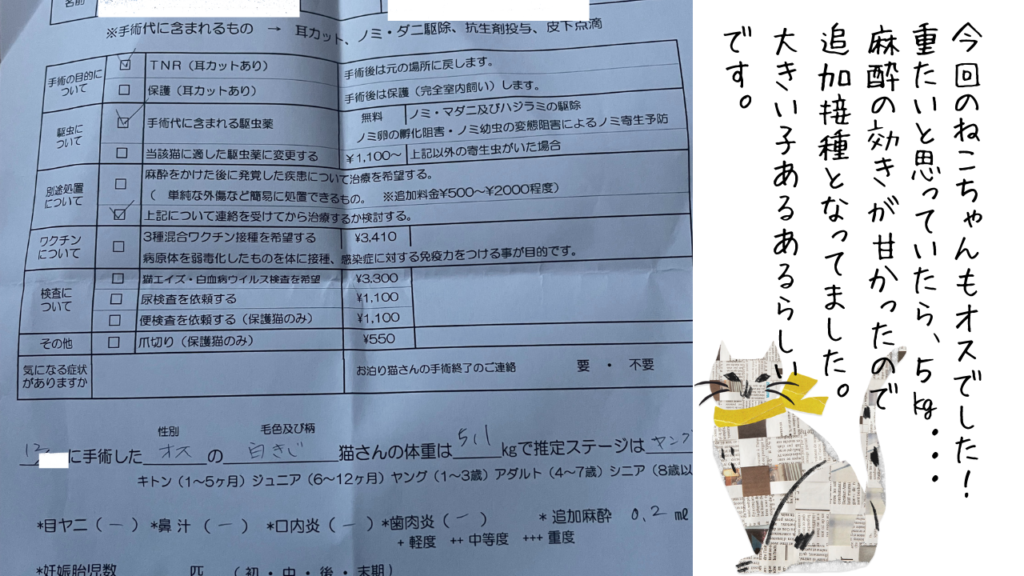 名前
※手術代に含まれるもの → 耳カット、ノミ・ダニ駆除、抗生剤投与、皮下点滴
手術の目的について
TNR（耳カットあり）
手術後は元の場所に戻します。
保護（耳カットあり）
手術後は保護（完全室内飼い）します。
駆虫について
手術代に含まれる駆虫薬
無料
ノミ・マダニ及びハジラミの駆除
ノミ卵の孵化阻害・ノミ幼虫の変態阻害によるノミ寄生予防
当該猫に適した駆虫薬に変更する
¥1,100～
上記以外の寄生虫がいた場合
別途処置について
麻酔をかけた後に発覚した疾患について治療を希望する。
（ 単純な外傷など簡易に処置できるもの。 ※追加料金¥500～¥2000程度）
上記について連絡を受けてから治療するか検討する。
ワクチンについて
3種混合ワクチン接種を希望する
¥3,410
病原体を弱毒化したものを体に接種、感染症に対する免疫力をつける事が目的です。
検査について
猫エイズ・白血病ウイルス検査を希望
¥3,300
尿検査を依頼する
¥1,100
便検査を依頼する（保護猫のみ）
¥1,100
その他
爪切り（保護猫のみ）
¥550
気になる症状がありますか
お泊り猫さんの手術終了のご連絡 要 ・ 不要
性別 毛色及び柄
に手術した オス の 白きじ 猫さんの体重は 5.1 kgで推定ステージは ヤング
キトン（1～5ヶ月）ジュニア（6～12ヶ月）ヤング（1～3歳）アダルト（4～7歳）シニア（8歳以
*目ヤニ（ー）*鼻汁（ー） *口内炎（ー）*歯肉炎（ー） *追加麻酔 0.2 ml
+ 軽度 ++ 中等度 +++ 重度
*妊娠胎児数 匹 （初・中・後・末期）
今回のねこちゃんもオスでした！
重たいと思っていたら、5kg・・・
麻酔の効きが甘かったので
追加接種となってました。
大きい子あるあるらしい
です。